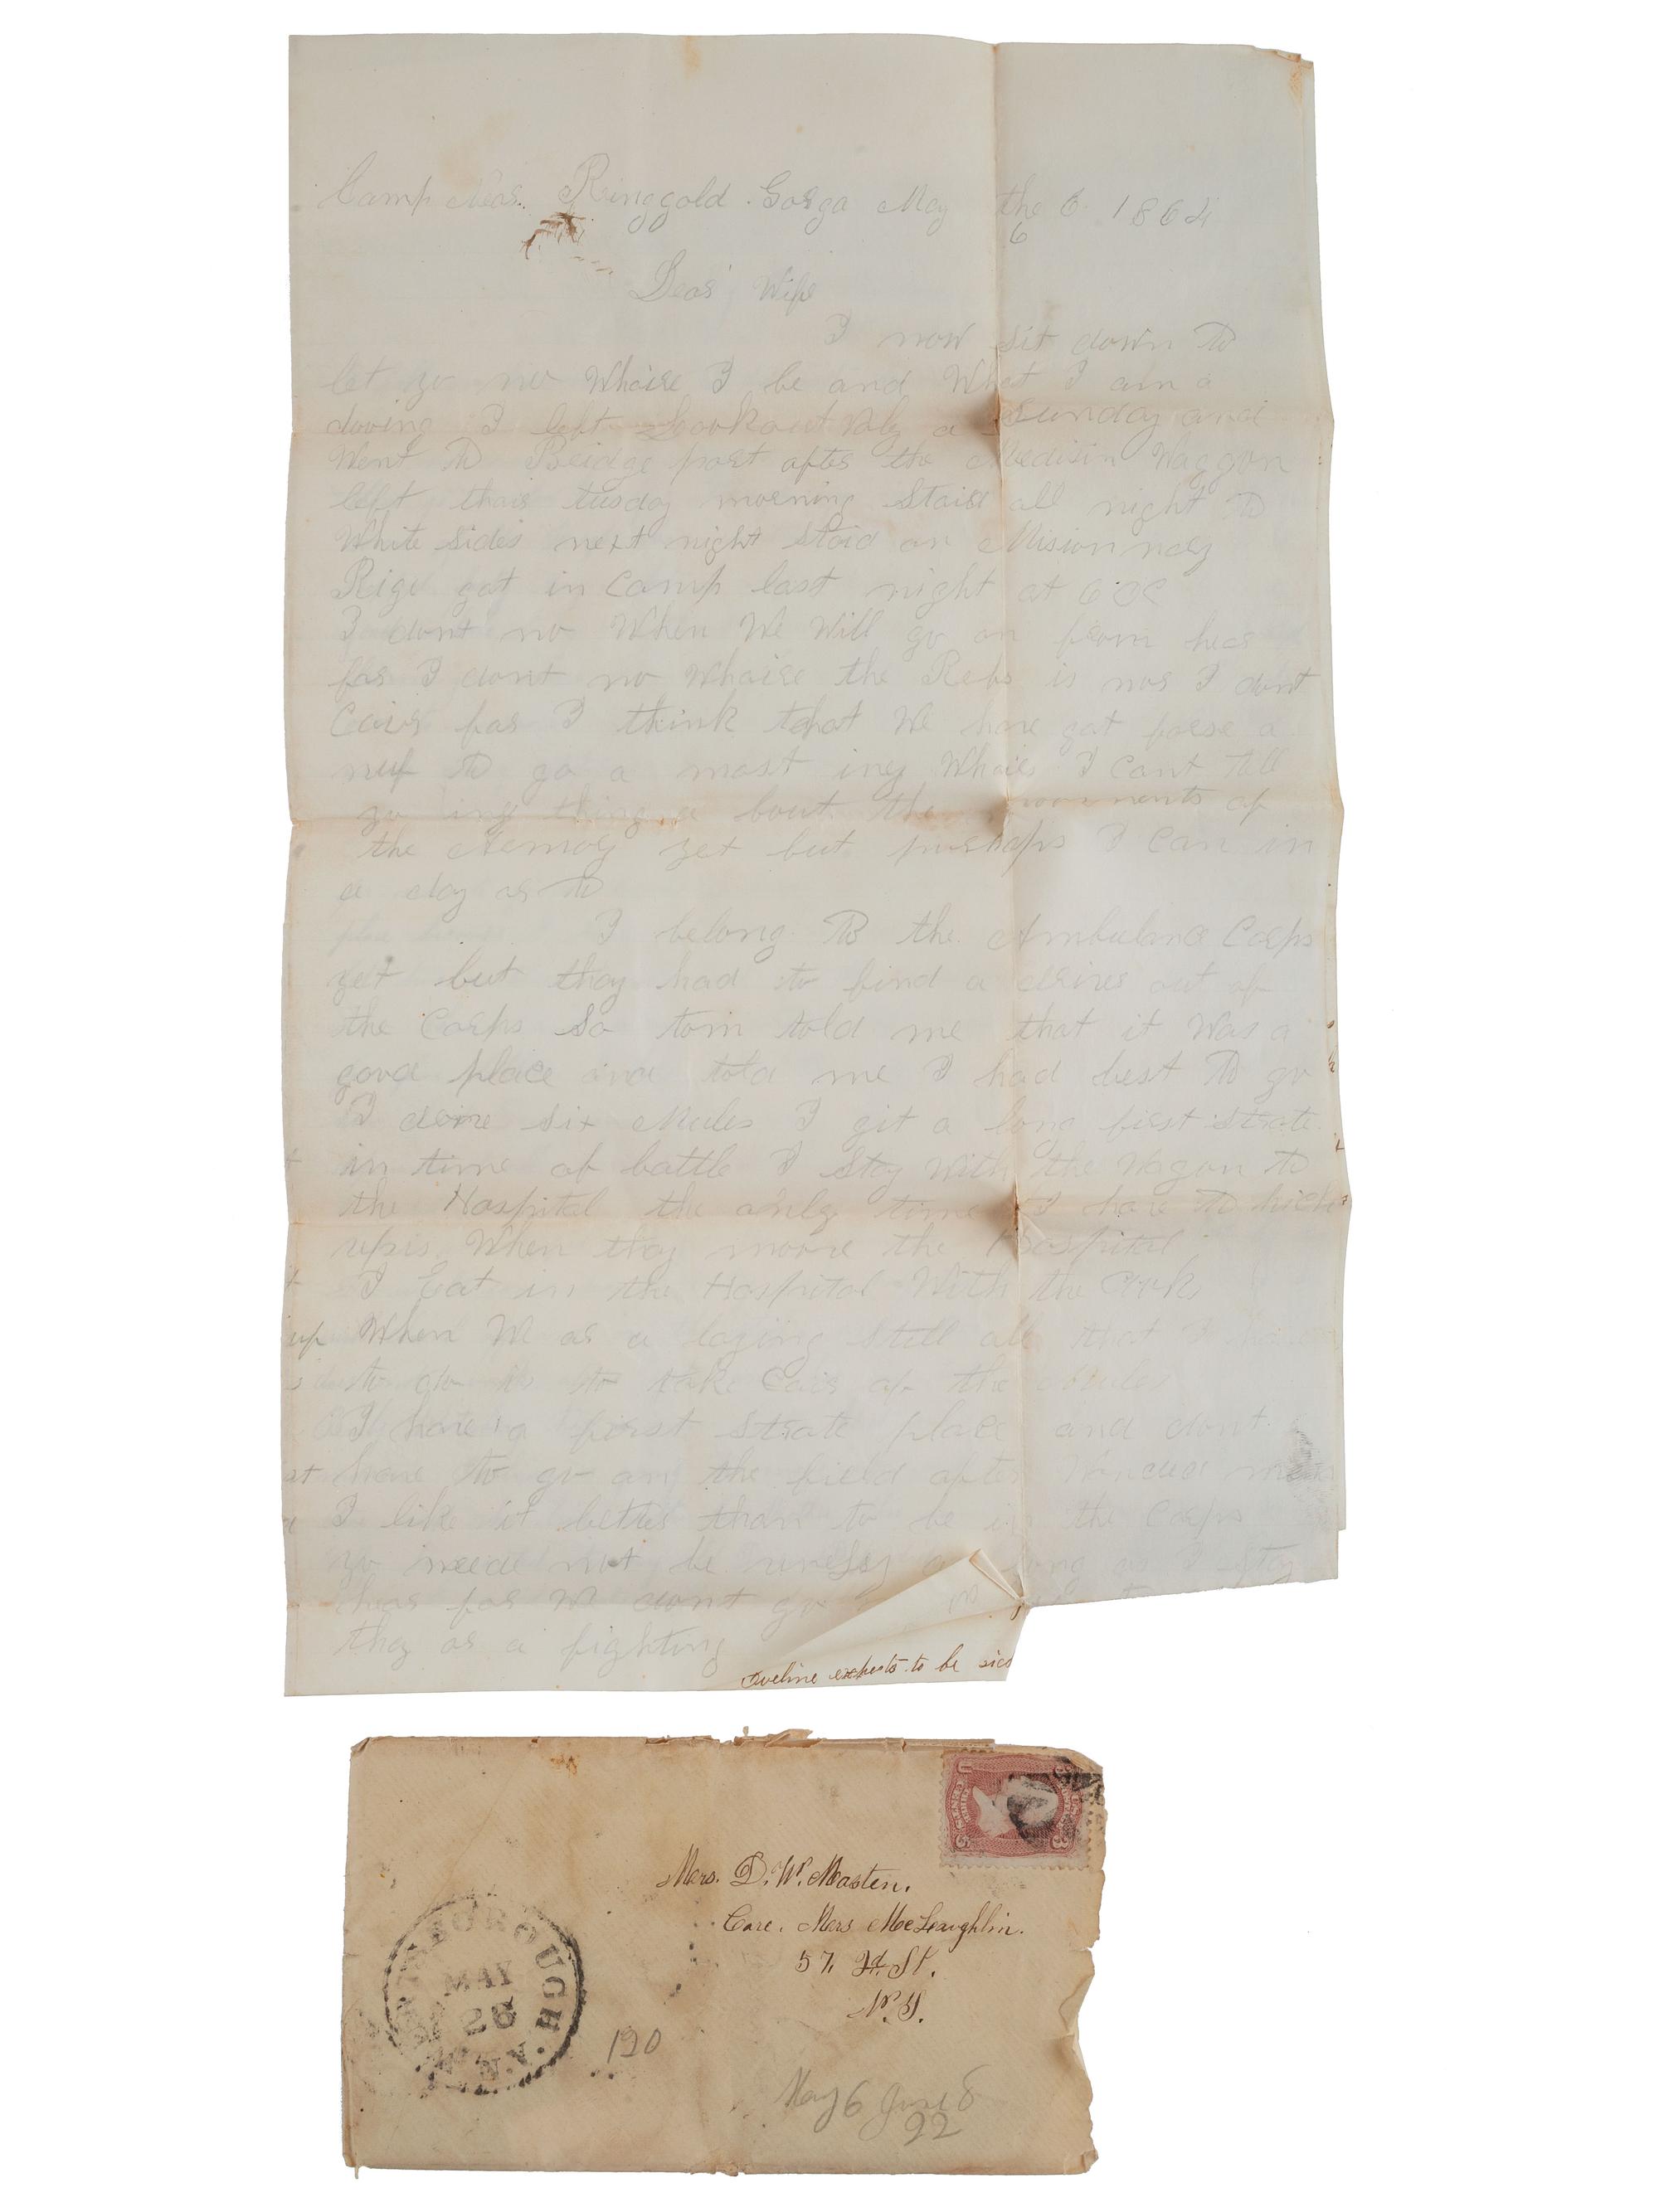 Camp Near Ringgold Gorga May the 6 1864
6
Dear Wife
I now sit down to
let yo no Whaire I be and What I am a
doving I left Lookout Valy a Sunday and
Went to Bridge port after the Medisin Waggon
left thair tusday morning Staid all night to
White Sides next night staid on Misionnary
Rige got in Camp last night at 6 OC
I dont no When We Will go on from hear
for I dont no Whaire the Rebs is nor I dont
Cair for I think that We have got forse a
nuf to go a most iney Whair I Cant tell
yo iny thing a bout the movments of
the Aemoy yet but purhaps I Can in
a day or to
I belong to the Ambulance Corps
yet but thay had to find a driver out of
the Corps So tom told me that it Was a
good place and told me I had best to go
I drive six Mules I git a long first Strate
in time of battle I Stay With the Wagon to
the Hospital the only time I have to hich
up is When thay moove the Hospital
I Eat in the Hospital With the
up When We ar a laying Still all that I have
to do is to take Cair of the Mules
I have a first Strate place and dont
at have to go on the field after Wnded men
I like it better than to be in the Corps
yo neede not be unesy a long as I Stay
hear for We dont go
thay ar a fighting
Aveline expects to be sick
Mrs. D. W. Masten.
Care. Mrs McLaughlin.
57, 9t. St.
N.Y.
BOROUGH N.Y.
MAY
26
190
May 6 June 8
22
U 3 U.S.
3 THREE CENTS 3